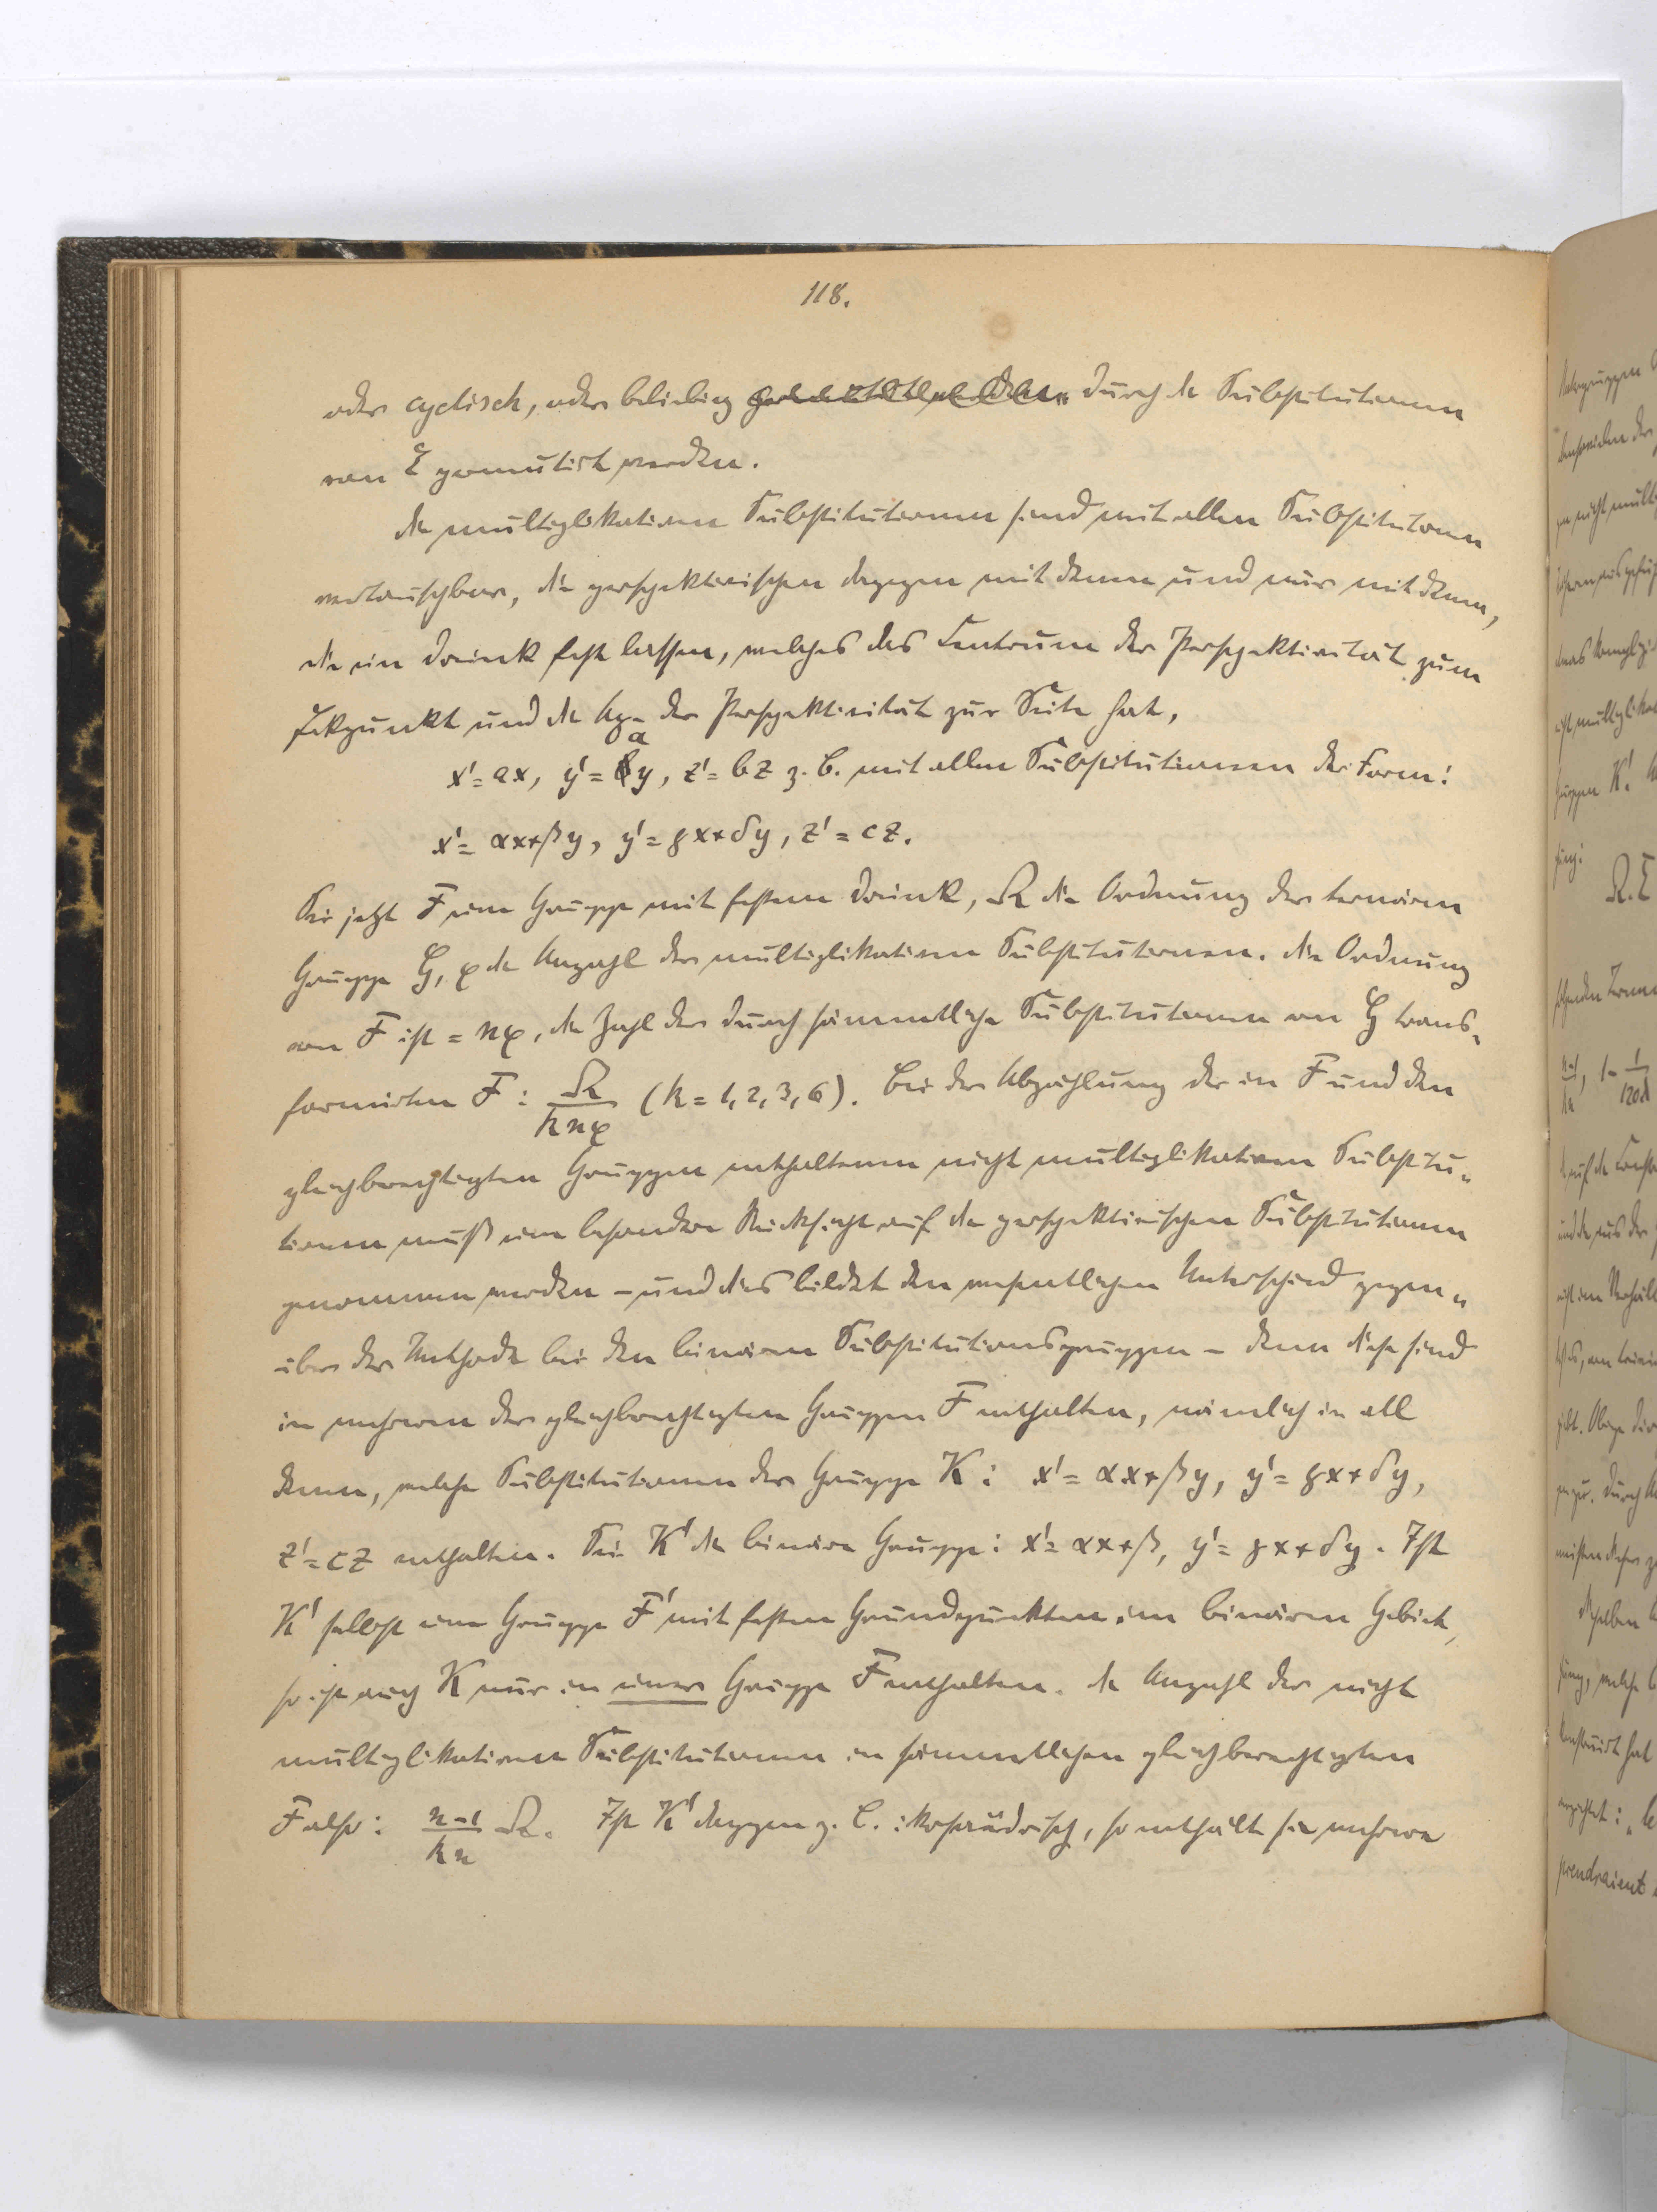 118.
oder cyclisch, oder beliebig durch die Substitutionen
von E permutirt werden.
Die multiplikativen Substitutionen sind mit allen Substitutionen
vertauschbar, die perspektivischen dagegen mit denen und nur mit denen,
die ein Dreieck fest lassen, welches das Centrum der Perspektivität zum
Eckpunkt und die Axe der Perspektivität zur Seite hat,
x' = ax, y' = ay, z' = bz z. B. mit allen Substitutionen der Form:
x' = αx+βy, y' = γx+δy, z' = cz.
Sei jetzt F eine Gruppe mit festem Dreieck, Ω die Ordnung der ternären
Gruppe G, φ die Anzahl der multiplikativen Substitutionen. Die Ordnung
von F ist = nφ, die Zahl der durch sämmtliche Substitutionen von G trans-
formirten F: Ω/knφ (k = 1, 2, 3, 6). Bei der Abzählung der in F und den
gleichberechtigten Gruppen enthaltenen nicht multiplikativen Substitu-
tionen muß eine besondere Rücksicht auf die perspektivischen Substitutionen
genommen werden – und dies bildet den wesentlichen Unterschied gegen-
über der Methode bei den binären Substitutionsgruppen – denn diese sind
in mehreren der gleichberechtigten Gruppen F enthalten, nämlich in all
denen, welche Substitutionen der Gruppe K: x' = αx+βy, y' = γx+δy,
z' = cz enthalten. Sei K' die binäre Gruppe: x' = αx+β, y' = γx+δy. Ist
K' selbst eine Gruppe F' mit festen Grundpunkten im binären Gebiet,
so ist auch K nur in einer Gruppe F enthalten. Die Anzahl der nicht
multiplikativen Substitutionen in sämmtlichen gleichberechtigten
F also: n-1/kn Ω. Ist K' dagegen z. B. ikosaëdrisch, so enthält sie mehrere